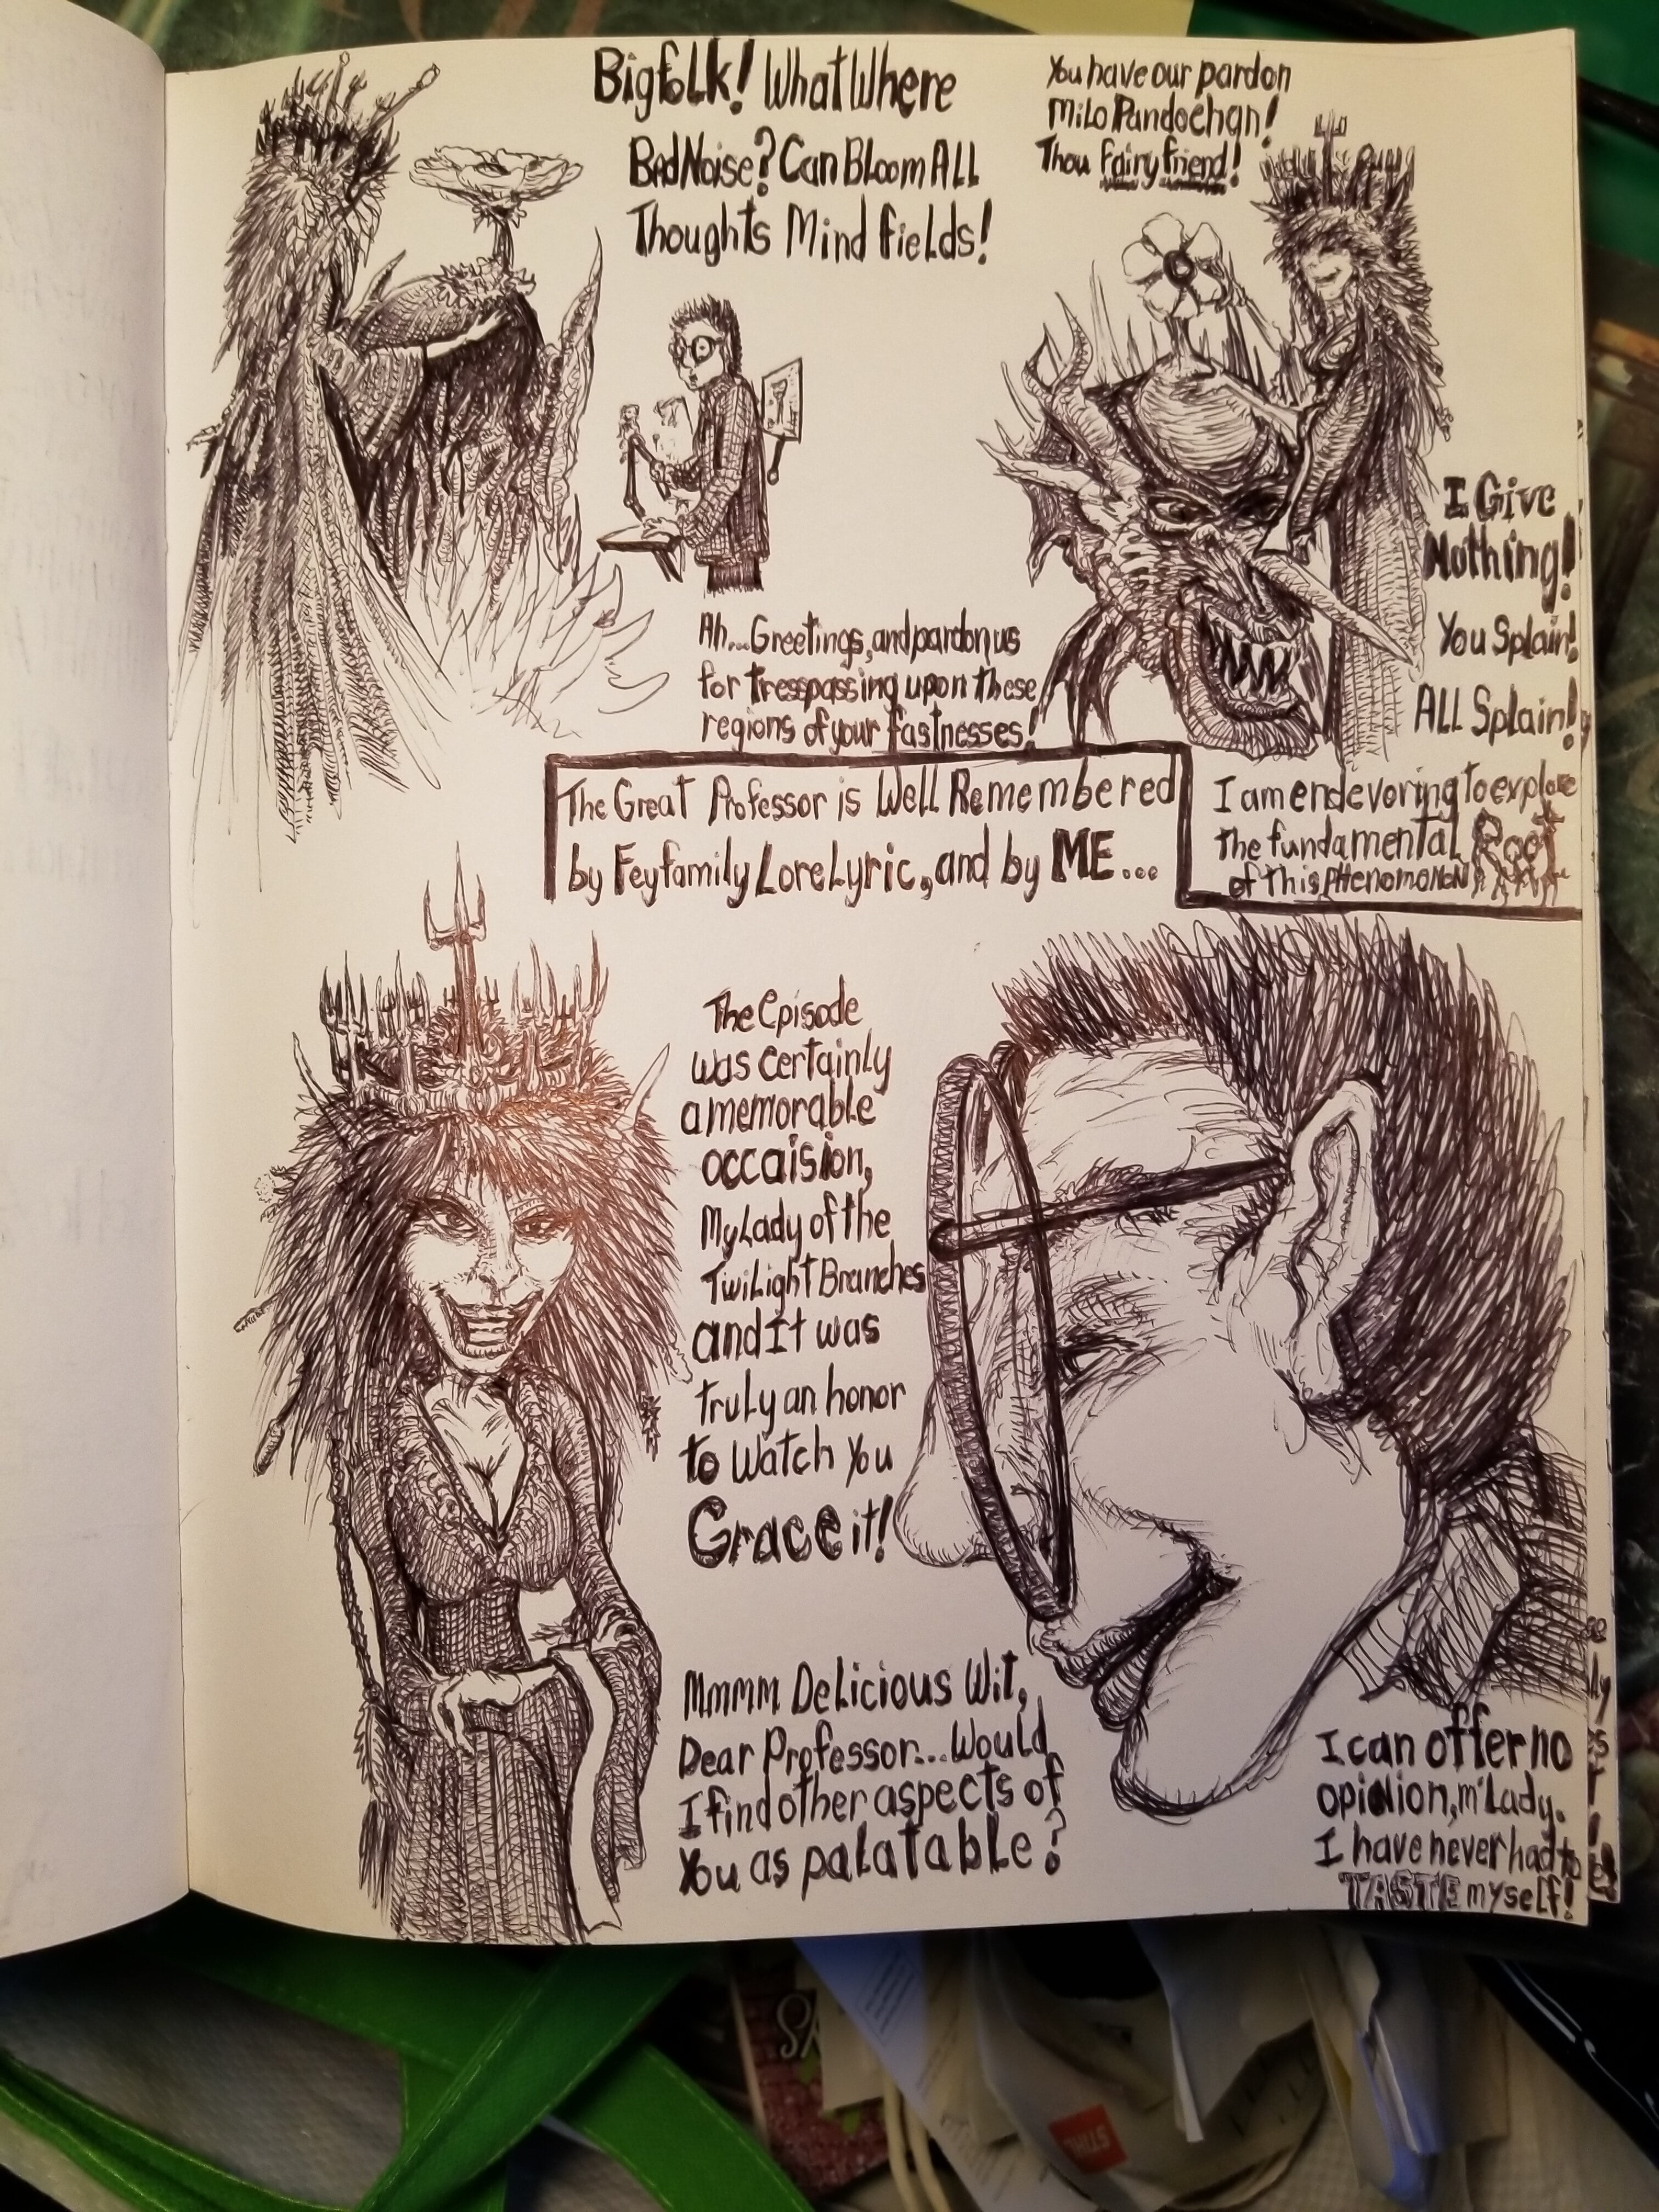 Bigfolk! What Where
Bad Noise? Can Bloom All
Thoughts Mind Fields!
You have our pardon
Milo Pandoehgn!
Thou Fairy friend!
I Give
Nothing!
You Splain!
ALL Splain!
Ah...Greetings, and pardon us
for tresspassing upon these
regions of your fastnesses!
The Great Professor is Well Remembered
by Feyfamily LoreLyric, and by ME...
I am endevoring to explore
the fundamental Root
of this PHenomoNoN
The Episode
was certainly
a memorable
occaision,
My Lady of the
Twilight Branches
and It was
truly an honor
to watch You
Grace it!
Mmmm Delicious Wit,
Dear Professor...Would
I find other aspects of
You as palatable?
I can offer no
opinion, m'Lady.
I have never had to
TASTE myself!
STIHL